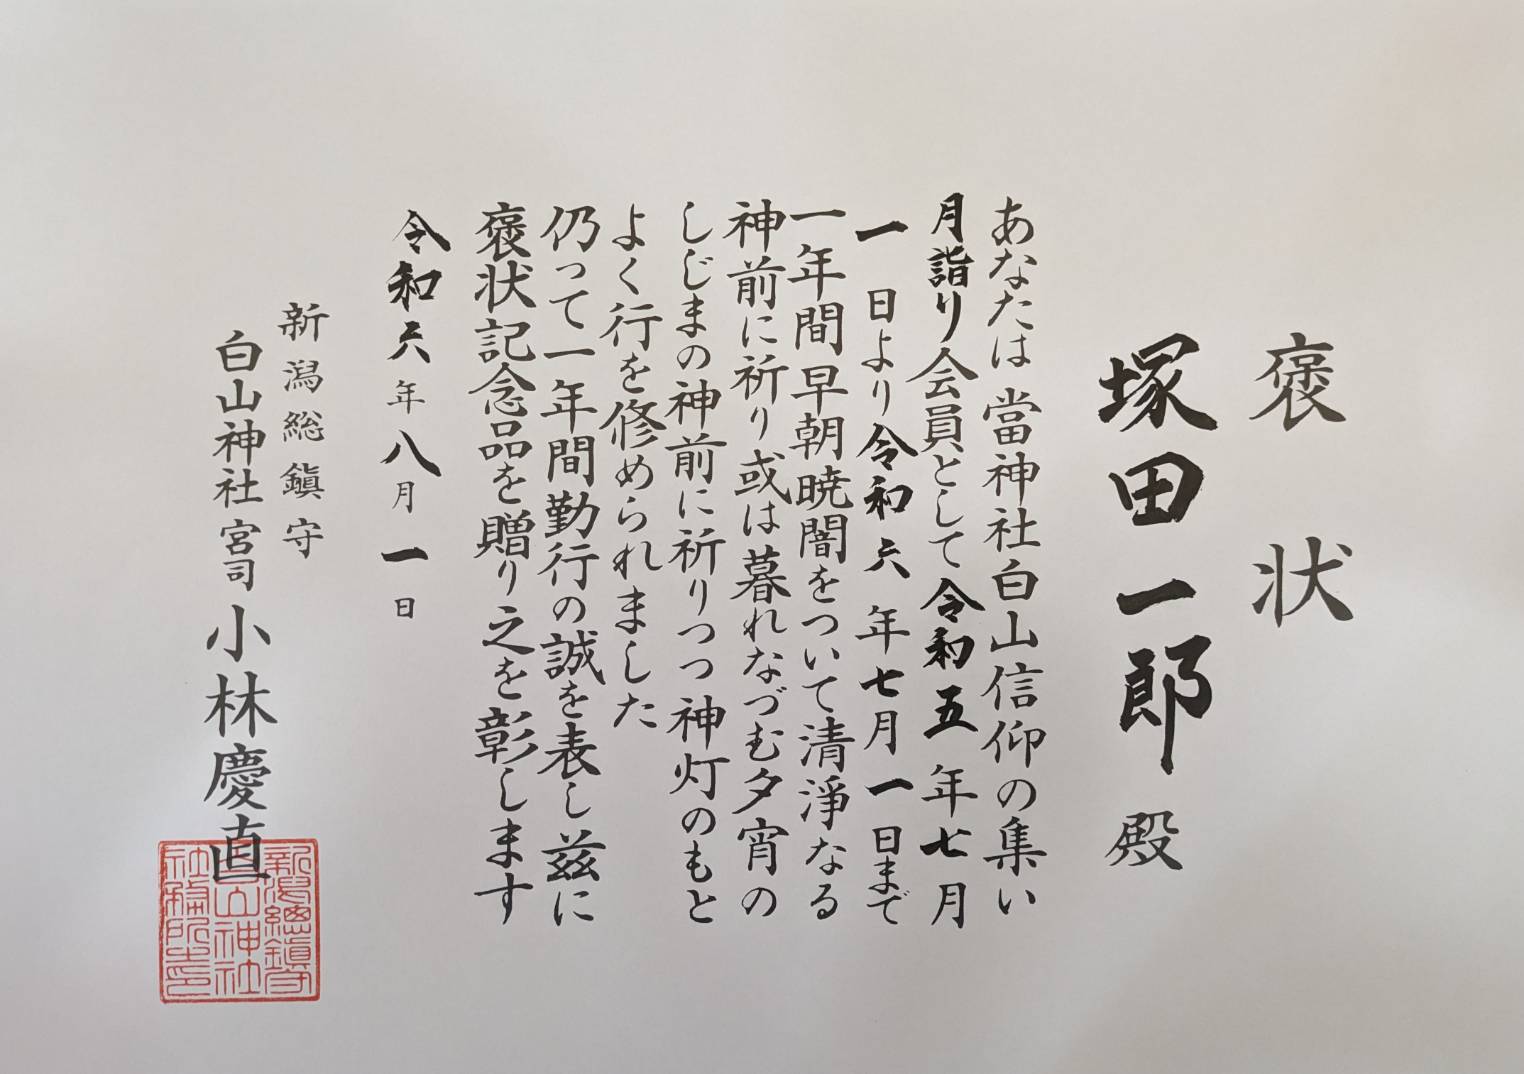 褒状
塚田一郎殿
あなたは當神社白山信仰の集い
月詣り会員として令和五年七月
一日より令和六年七月一日まで
一年間早朝暁闇をついて清浄なる
神前に祈り或は暮れなづむ夕宵の
しじまの神前に祈りつつ神灯のもと
よく行を修められました
仍って一年間勤行の誠を表し茲に
褒状記念品を贈り之を彰します
令和六年八月一日
新潟総鎮守
白山神社宮司小林慶直
新潟總鎮守
白山神社
社務所之印